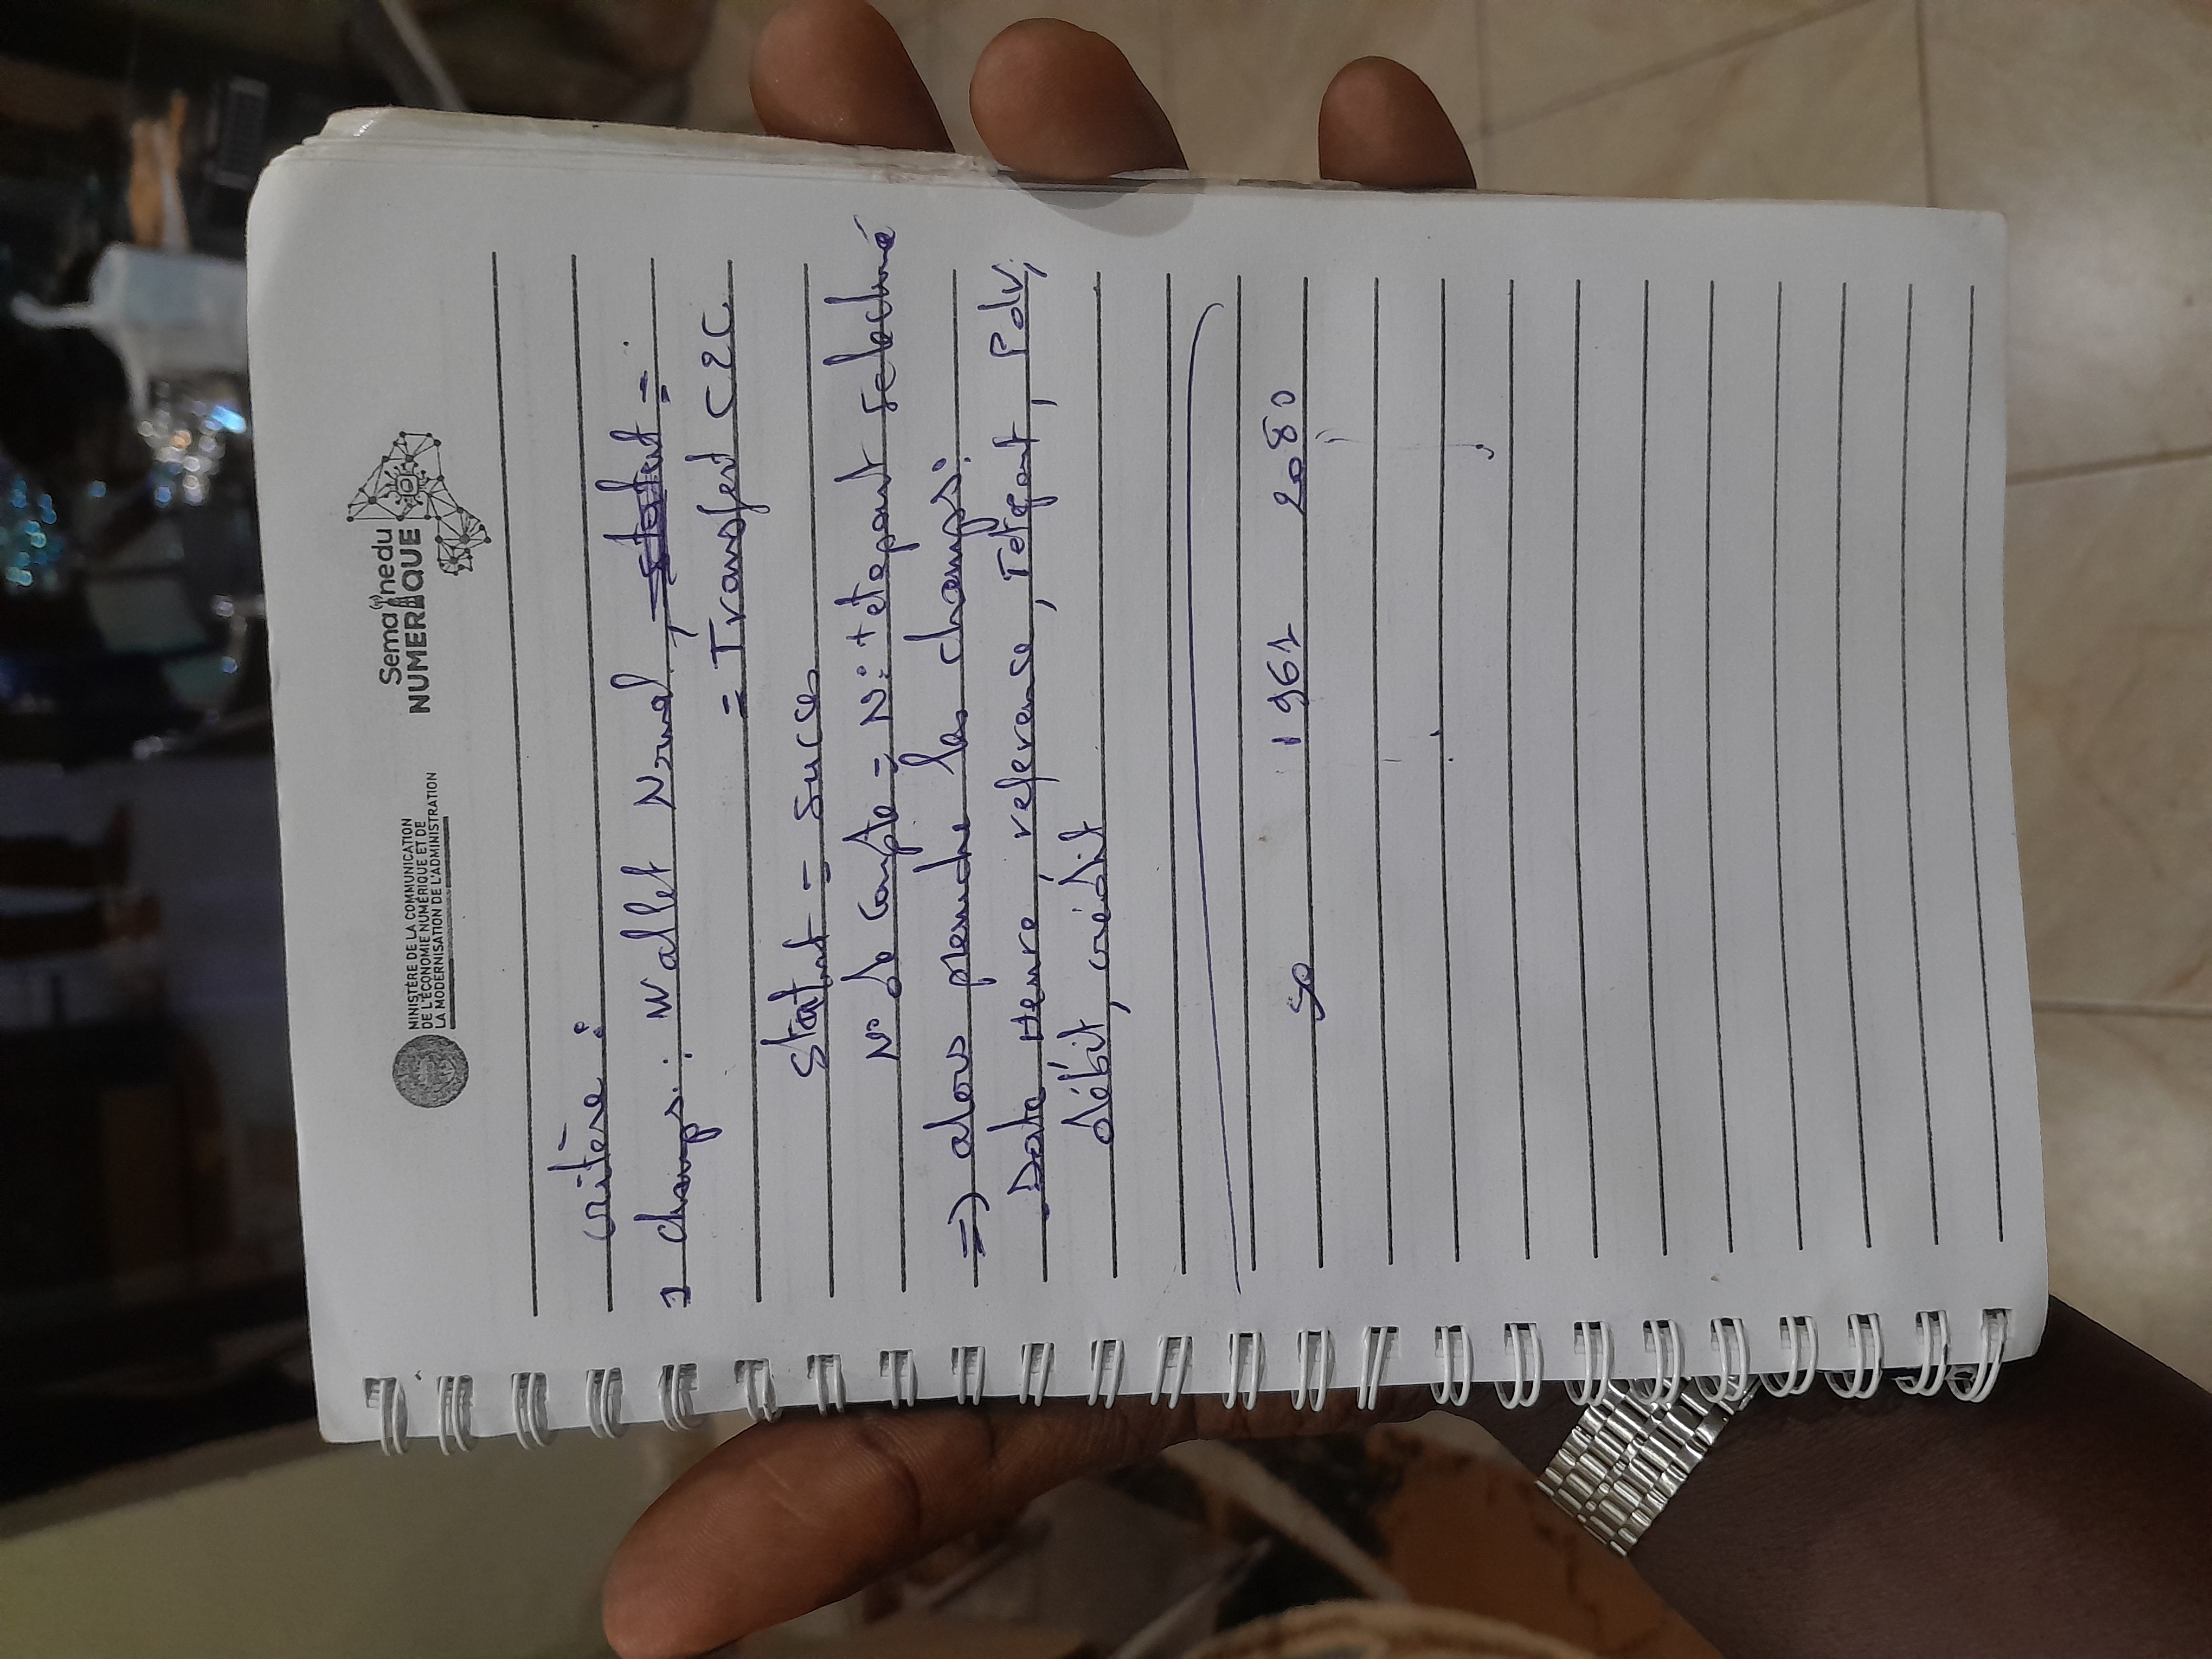 MINISTÈRE DE LA COMMUNICATION
DE L'ÉCONOMIE NUMÉRIQUE ET DE
LA MODERNISATION DE L'ADMINISTRATION
Semaine du
NUMERIQUE
critère :
champs : Wallet Normal, statut =
= Transfert C2C
statut = succes
N° de Compte = N° tetepont selectné
=> alors prendre les champs:
Date, Heure, reference, Pdv,
débit, crédit
50 1961 2080